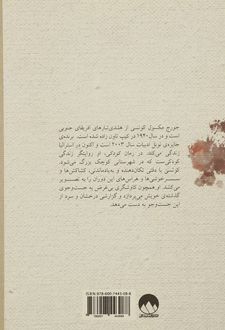 جورج مکسول کوتسی از هلندی‌تبارهای آفریقای جنوبی
است و در سال ۱۹۴۰ در کیپ تاون زاده شده است. برنده‌ی
جایزه‌ی نوبل ادبیات سال ۲۰۰۳ است و اکنون در استرالیا
زندگی می‌کند. در رمان کودکی، او روایتگر زندگی
کودکی‌ست که در شهرستانی کوچک بزرگ می‌شود.
کوتسی با دقتی تکان‌دهنده و به‌یادماندنی، کشاکش‌ها و
سرخوشی‌ها و هراس‌های این دوران را به تصویر
می‌کشد. او همچون کاوشگری بی‌غرض به جست‌وجوی
گذشته‌ی خویش می‌پردازد و گزارشی درخشان و سرد از
این جست‌وجو به دست می‌دهد.
ISBN 978-600-7443-08-8